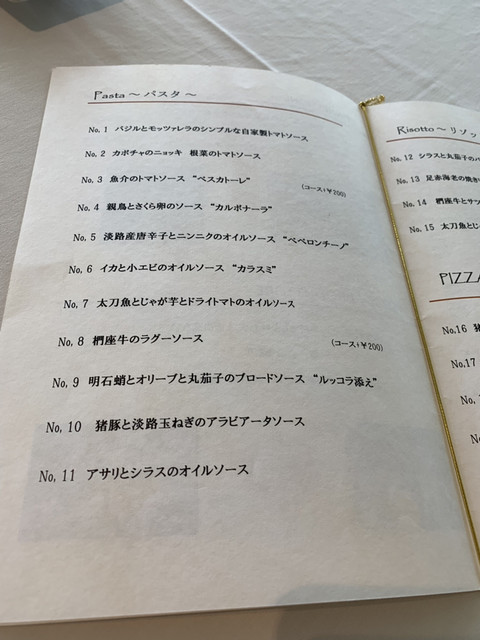 Pasta ～ パスタ ～
No, 1 バジルとモッツァレラのシンプルな自家製トマトソース
No, 2 カボチャのニョッキ 根菜のトマトソース
No, 3 魚介のトマトソース “ペスカトーレ” (コース+￥200)
No, 4 親鳥とさくら卵のソース “カルボナーラ”
No, 5 淡路産唐辛子とニンニクのオイルソース “ペペロンチーノ”
No, 6 イカと小エビのオイルソース “カラスミ”
No, 7 太刀魚とじゃが芋とドライトマトのオイルソース
No, 8 椚座牛のラグーソース (コース+￥200)
No, 9 明石蛸とオリーブと丸茄子のブロードソース “ルッコラ添え”
No, 10 猪豚と淡路玉ねぎのアラビアータソース
No, 11 アサリとシラスのオイルソース
Risotto ～ リゾッ
No, 12 シラスと丸茄子の
No, 13 足赤海老の焼き
No, 14 椚座牛とサ
No, 15 太刀魚とじ
PIZZA
No,16 猪
No,17